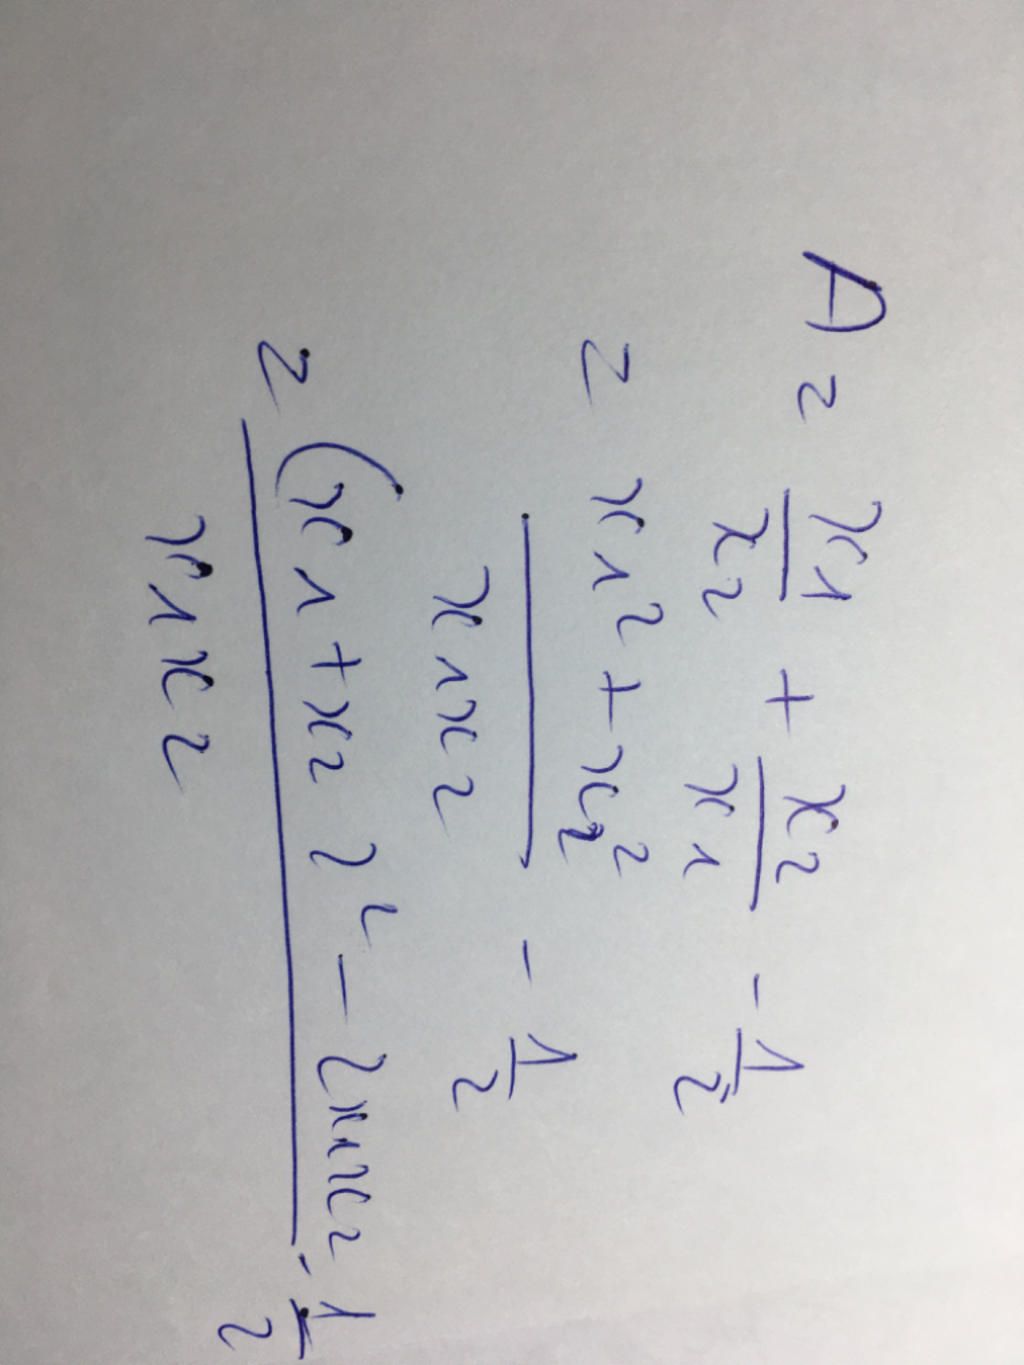 A = x1/x2 + x2/x1 - 1/2
= x1² + x2² / x1x2 - 1/2
= (x1 + x2)² - 2x1x2 / x1x2 - 1/2